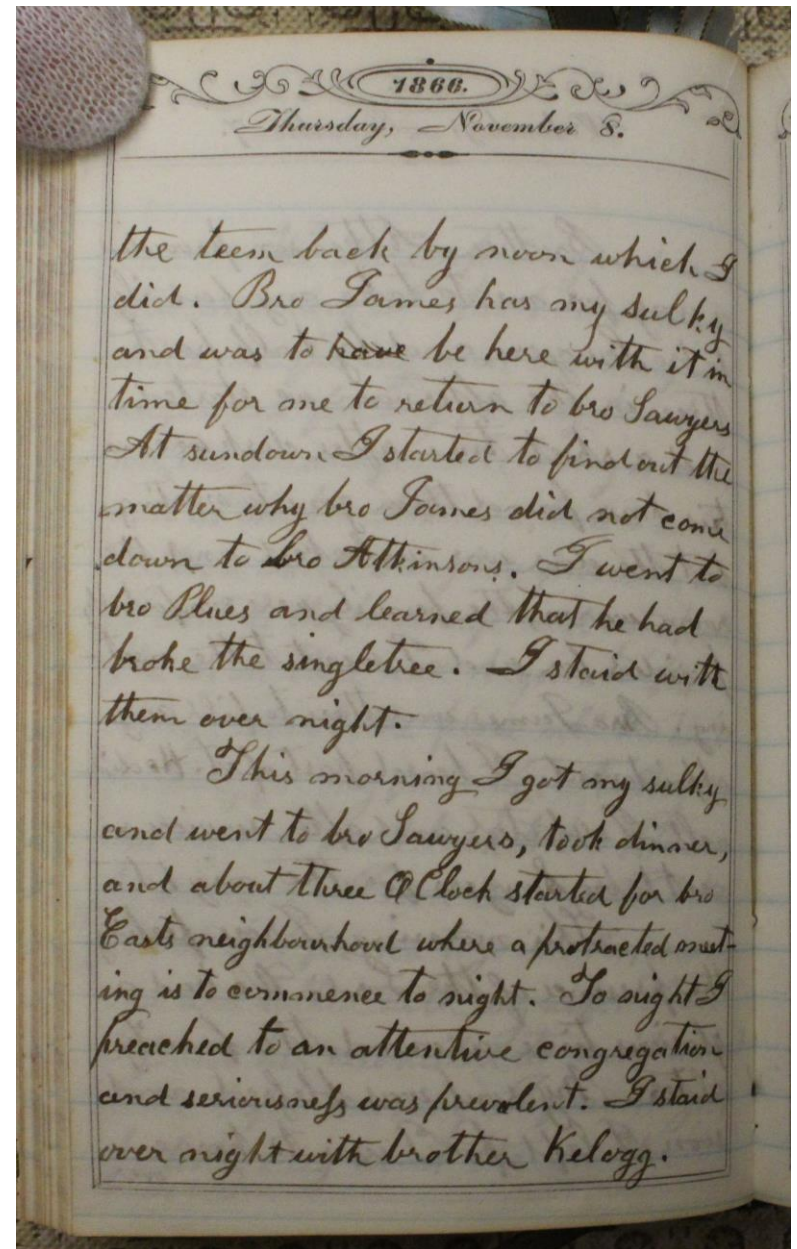 1866.
Thursday, November 8.
the teem back by noon which I
did. Bro James has my sulky
and was to ~~have~~ be here with it in
time for me to return to bro Sawyers
At sundown I started to find out the
matter why bro James did not come
down to bro Atkinsons. I went to
bro Plues and learned that he had
broke the singletree. I staid with
them over night.
This morning I got my sulky
and went to bro Sawyers, took dinner,
and about three O Clock started for bro
Easts neighbourhood where a protracted meet-
ing is to commence to night. To night I
preached to an attentive congregation
and seriousneſs was prevalent. I staid
over night with brother Kelogg.